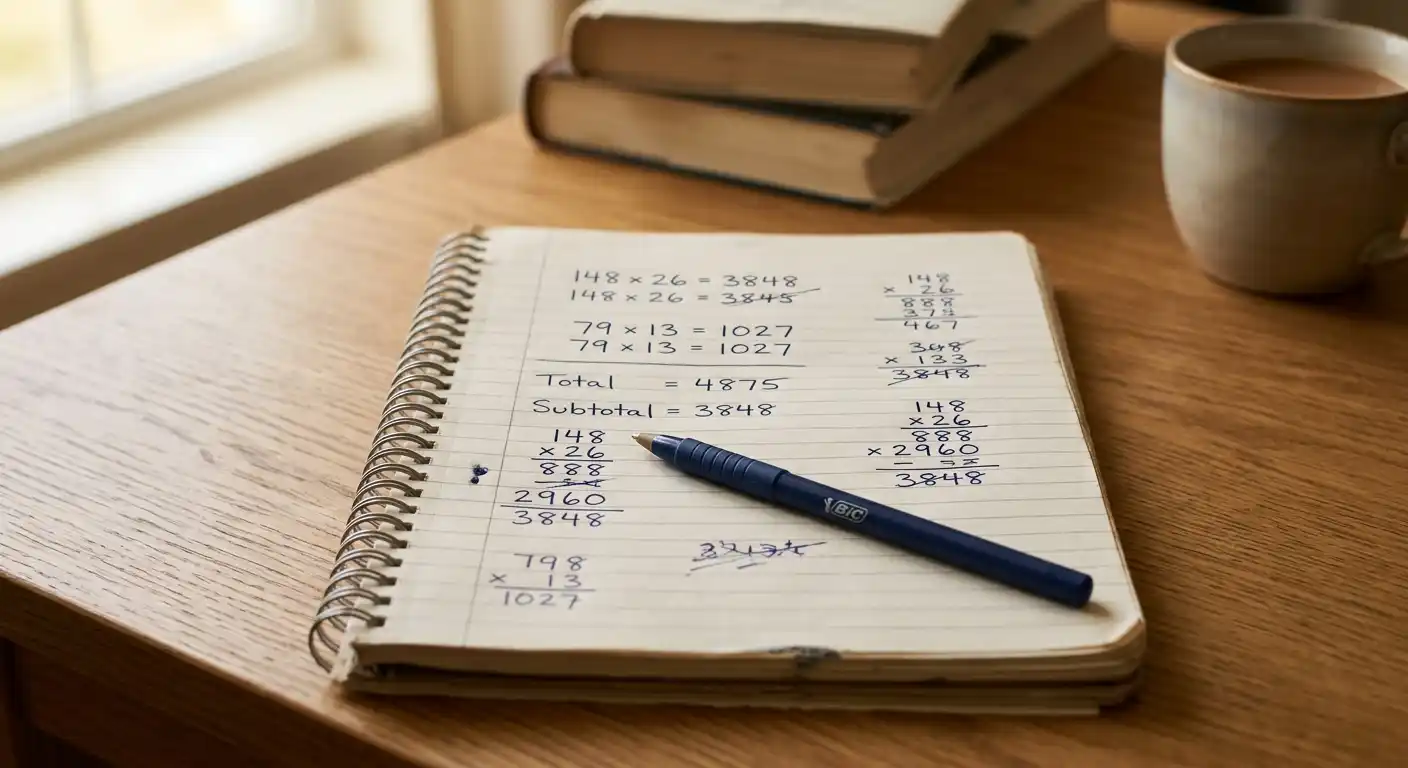 148 × 26 = 3848
148 × 26 = 3845
79 × 13 = 1027
79 × 13 = 1027
Total = 4875
Subtotal = 3848
148
×26
888
2960
3848
798
× 13
1027
148
× 26
888
467
348
× 133
3848
148
×26
888
× 2960
3848
BIC